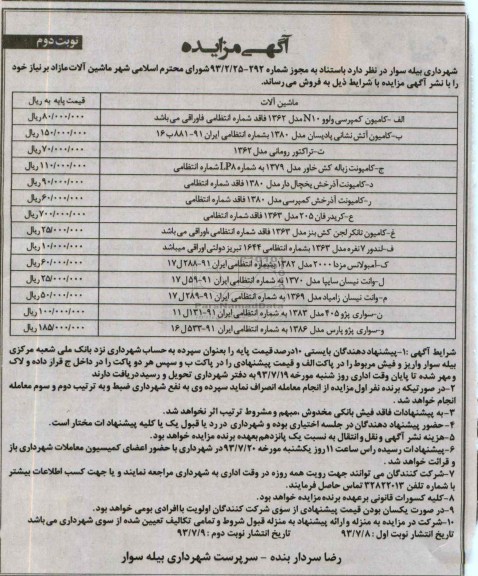 آگهی مزایده
نوبت دوم
شهرداری بیله سوار در نظر دارد باستناد به مجوز شماره ۲۹۲-۹۳/۲/۲۵ شورای محترم اسلامی شهر ماشین آلات مازاد بر نیاز خود
را با نشر آگهی مزایده با شرایط ذیل به فروش می رساند.
ماشین آلات قیمت پایه به ریال
الف -کامیون کمپرسی ولوو N10 مدل ۱۳۶۲ فاقد شماره انتظامی فاوراقی می باشد ۸۰/۰۰۰/۰۰۰ ریال
ب-کامیون آتش نشانی پادیسان مدل ۱۳۸۰ بشماره انتظامی ایران ۹۱-۸۸۱ب۱۶ ۱۵۰/۰۰۰/۰۰۰ ریال
ت-تراکتور رومانی مدل ۱۳۶۲ ۷۰/۰۰۰/۰۰۰ ریال
ج-کامیونت زباله کش خاور مدل ۱۳۷۹ به شماره LP8 شماره انتظامی ۱۱۰/۰۰۰/۰۰۰ ریال
د-کامیونت آذرخش یخچال دار مدل ۱۳۸۰ فاقد شماره انتظامی ۹۰/۰۰۰/۰۰۰ ریال
ر-کامیونت آذرخش کمپرسی مدل ۱۳۸۰ فاقد شماره انتظامی ۶۰/۰۰۰/۰۰۰ ریال
ع-گریدر فان ۲۰۵ مدل ۱۳۶۳ فاقد شماره انتظامی ۷۰۰/۰۰۰/۰۰۰ ریال
غ-کامیون تانکر لجن کش بنز مدل ۱۳۶۳ فاقد شماره انتظامی ،اوراقی می باشد ۲۵/۰۰۰/۰۰۰ ریال
ف-لندور ۷ نفره مدل ۱۳۶۳ بشماره انتظامی ۱۶۴۴ تبریز دولتی اوراقی میباشد ۱۰/۰۰۰/۰۰۰ ریال
ک-آمبولانس مزدا ۲۰۰۰ مدل ۱۳۸۲ بشماره انتظامی ایران ۹۱-۲۸۸ل۱۷ ۶۰/۰۰۰/۰۰۰ ریال
ل-وانت نیسان سایپا مدل ۱۳۷۰ به شماره انتظامی ایران ۹۱-۵۹ل۱۷ ۲۵/۰۰۰/۰۰۰ ریال
م-وانت نیسان زامیاد مدل ۱۳۶۹ به شماره انتظامی ایران ۹۱-۲۸۹ل۱۷ ۵۰/۰۰۰/۰۰۰ ریال
ن-سواری پژو ۴۰۵ مدل ۱۳۸۳ به شماره انتظامی ایران ۹۱-۱۳۱ل۱۱ ۱۰۰/۰۰۰/۰۰۰ ریال
و-سواری پژو پارس مدل ۱۳۸۶ به شماره انتظامی ایران ۹۱-۵۳۳ل۱۶ ۱۸۵/۰۰۰/۰۰۰ ریال
شرایط آگهی :۱-پیشنهاد دهندگان بایستی ۱۰درصد قیمت پایه را بعنوان سپرده به حساب شهرداری نزد بانک ملی شعبه مرکزی
بیله سوار واریز و فیش مربوط را در پاکت الف و قیمت پیشنهادی را در پاکت ب و سپس هر دو پاکت را در داخل ج قرار داده و لاک
و مهر شده تا پایان وقت اداری روز شنبه مورخه ۹۳/۷/۱۹ به دفتر شهرداری تحویل و رسید دریافت دارند
۲-در صورتیکه برنده نفر اول مزایده از انجام معامله انصراف نماید سپرده وی به نفع شهرداری ضبط و به ترتیب دوم و سوم معامله
انجام خواهد شد .
۳-به پیشنهادات فاقد فیش بانکی مخدوش ،مبهم و مشروط ترتیب اثر نخواهد شد.
۴-حضور پیشنهاد دهندگان در جلسه اختیاری بوده و شهرداری در رد یا قبول یک یا کلیه پیشنهادات مختار است.
۵-هزینه نشر آگهی و نقل و انتقال به نسبت یک پانزدهم بعهده برنده مزایده خواهد بود.
۶-پیشنهادات رسیده راس ساعت ۱۱ روز یکشنبه مورخه ۹۳/۷/۲۰ در شهرداری با حضور اعضای کمیسیون معاملات شهرداری باز
و قرائت خواهد شد .
۷-شرکت کنندگان می توانند جهت رویت همه روزه در وقت اداری به شهرداری مراجعه نمایند و یا جهت کسب اطلاعات بیشتر
با شماره تلفن ۳۲۸۲۲۰۱۳ تماس حاصل فرمایند.
۸-کلیه کسورات قانونی برعهده برنده مزایده خواهد بود.
۹-در صورت یکسان بودن قیمت پیشنهادی از سوی شرکت کنندگان اولویت با افرادی بومی خواهد بود.
۱۰-شرکت در مزایده به منزله و ارائه پیشنهاد به منزله قبول شروط و تمامی تکالیف تعیین شده از سوی شهرداری می باشد
تاریخ انتشار نوبت اول : ۹۳/۷/۸ تاریخ انتشار نوبت دوم : ۹۳/۷/۹
رضا سردار بنده - سرپرست شهرداری بیله سوار